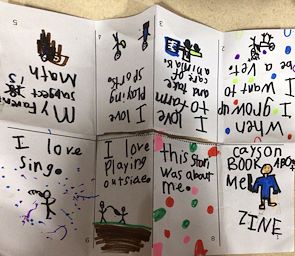 cayson
BOOK
ME
ZINE
2
When
I grow up
I want to
be a vet.
3
I love
to farm
and take
care of
animals.
4
I love
playing
sports.
5
My
is
Math
I love
sing.
6
I love
Playing
outside.
this story
was about
me.
8